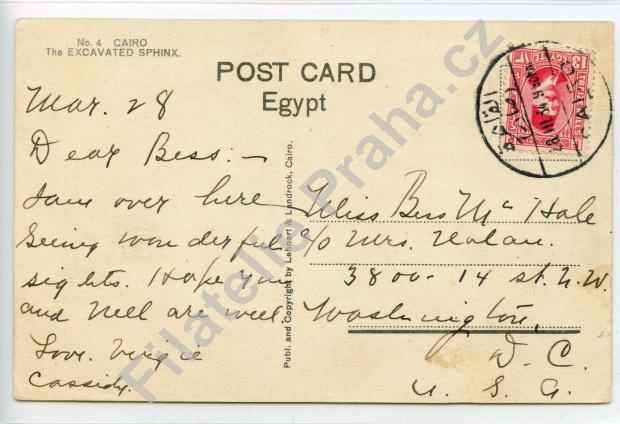 No. 4 CAIRO
The EXCAVATED SPHINX.
POST CARD
Egypt
Mar. 28
Dear Bess:—
Iam over here
seeing wonderful
sights. Hope you
and Nell are well.
Love. Virgie
Cassidy.
Publ. and Copyright by Lehnert & Landrock, Cairo.
Miss Bess Mc Hale
c/o Mrs. Nolan.
3800 - 14 st. N.W.
Washington,
D. C.
U. S. A.
Filatelie Praha.cz